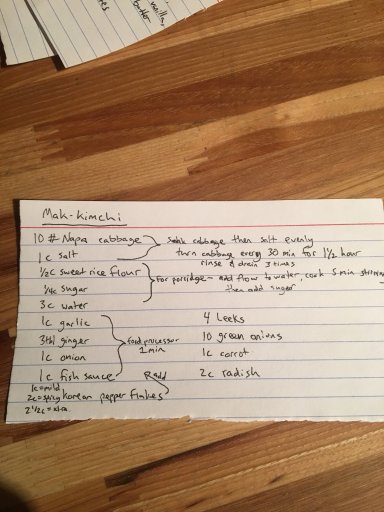 vanilla,
butter
Mak-kimchi
10 # Napa cabbage
1c salt
Soak cabbage then salt evenly
turn cabbage every 30 min for 1 1/2 hour
rinse & drain 3 times
1/2c sweet rice flour
1/4c sugar
3c water
For porridge - add flour to water, cook 5 min stirring
then add sugar
1c garlic
3tbl ginger
1c onion
1c fish sauce
food processor
1 min
add
1c=mild
2c=spicy Korean pepper flakes
2 1/2c=xtra
4 Leeks
10 green onions
1c carrot
2c radish